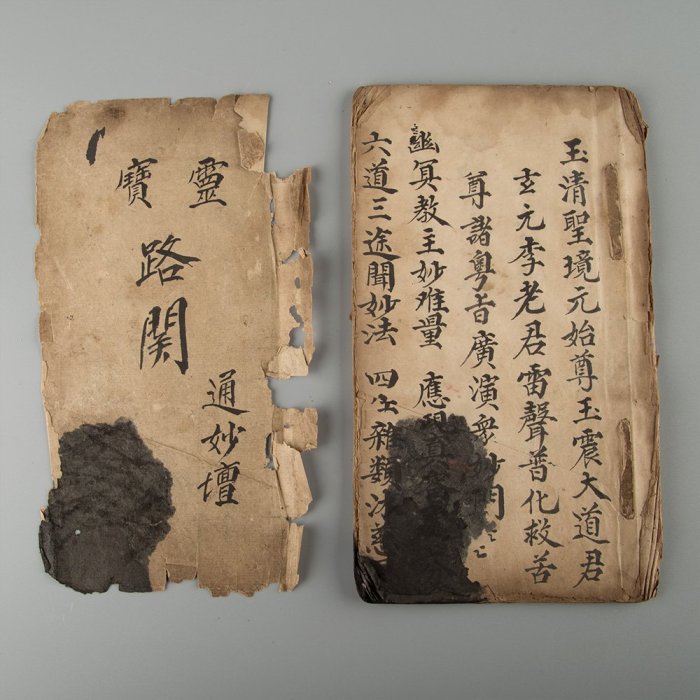 靈寶
路関
通妙壇
玉清聖境元始尊玉震大道君
玄元李老君雷聲普化救苦
尊諸粤旨廣演衆妙門
幽冥教主妙难量 應現真容
六道三途聞妙法 四生雜類沐慈